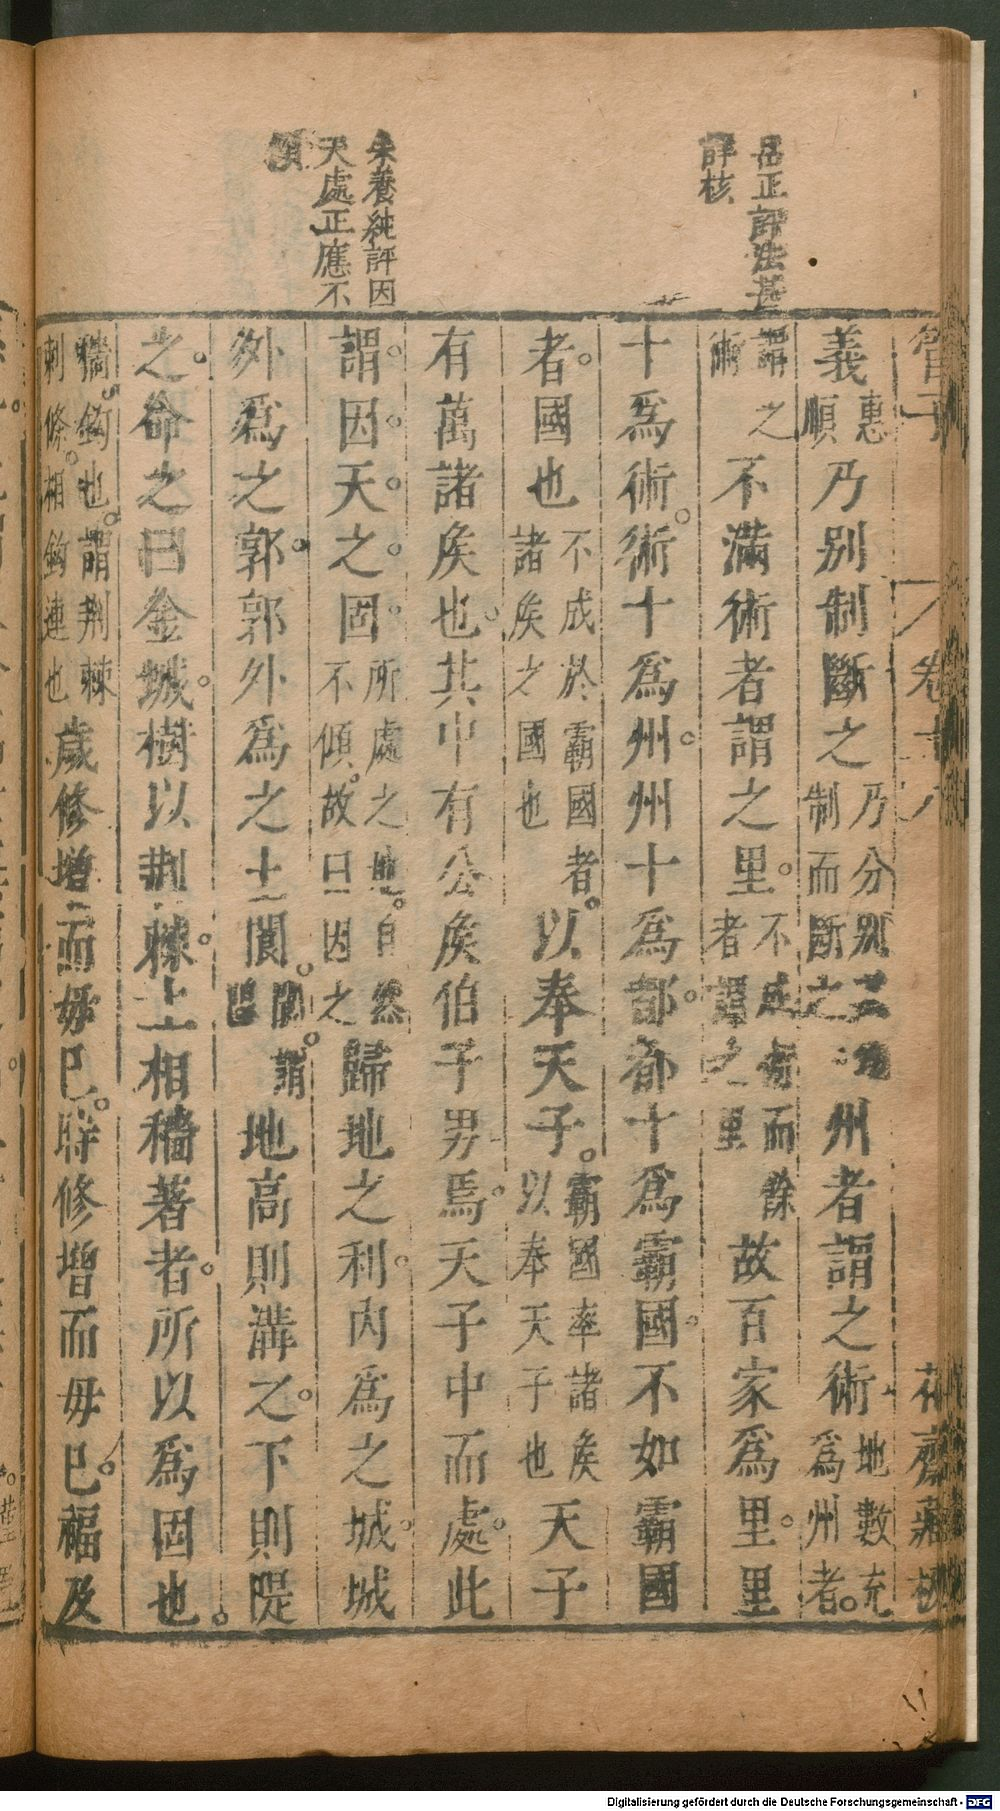 管子 卷十八 花齋藏板
呂正評法甚
詳核
朱養純評因
天處正應不
傾
義惠順乃別制斷之乃分別制而斷之州者謂之術地數充爲州者
謂之術不滿術者謂之里不成術而者謂之里餘故百家爲里里
十爲術術十爲州州十爲都都十爲霸國不如霸國
者國也不成於霸國者諸矦之國也以奉天子霸國率諸矦以奉天子也天子
有萬諸矦也其中有公矦伯子男焉天子中而處此
謂因天之固所處之地自然不傾故曰因之歸地之利內爲之城城
外爲之郭郭外爲之土閬閬謂地高則溝之下則隄
之命之曰金城樹以荆棘上相穡著者所以爲固也
穡鈎也謂荆棘刺條相鈎連也歲修增而毋已時修增而毋已福及
Digitalisierung gefördert durch die Deutsche Forschungsgemeinschaft - DFG